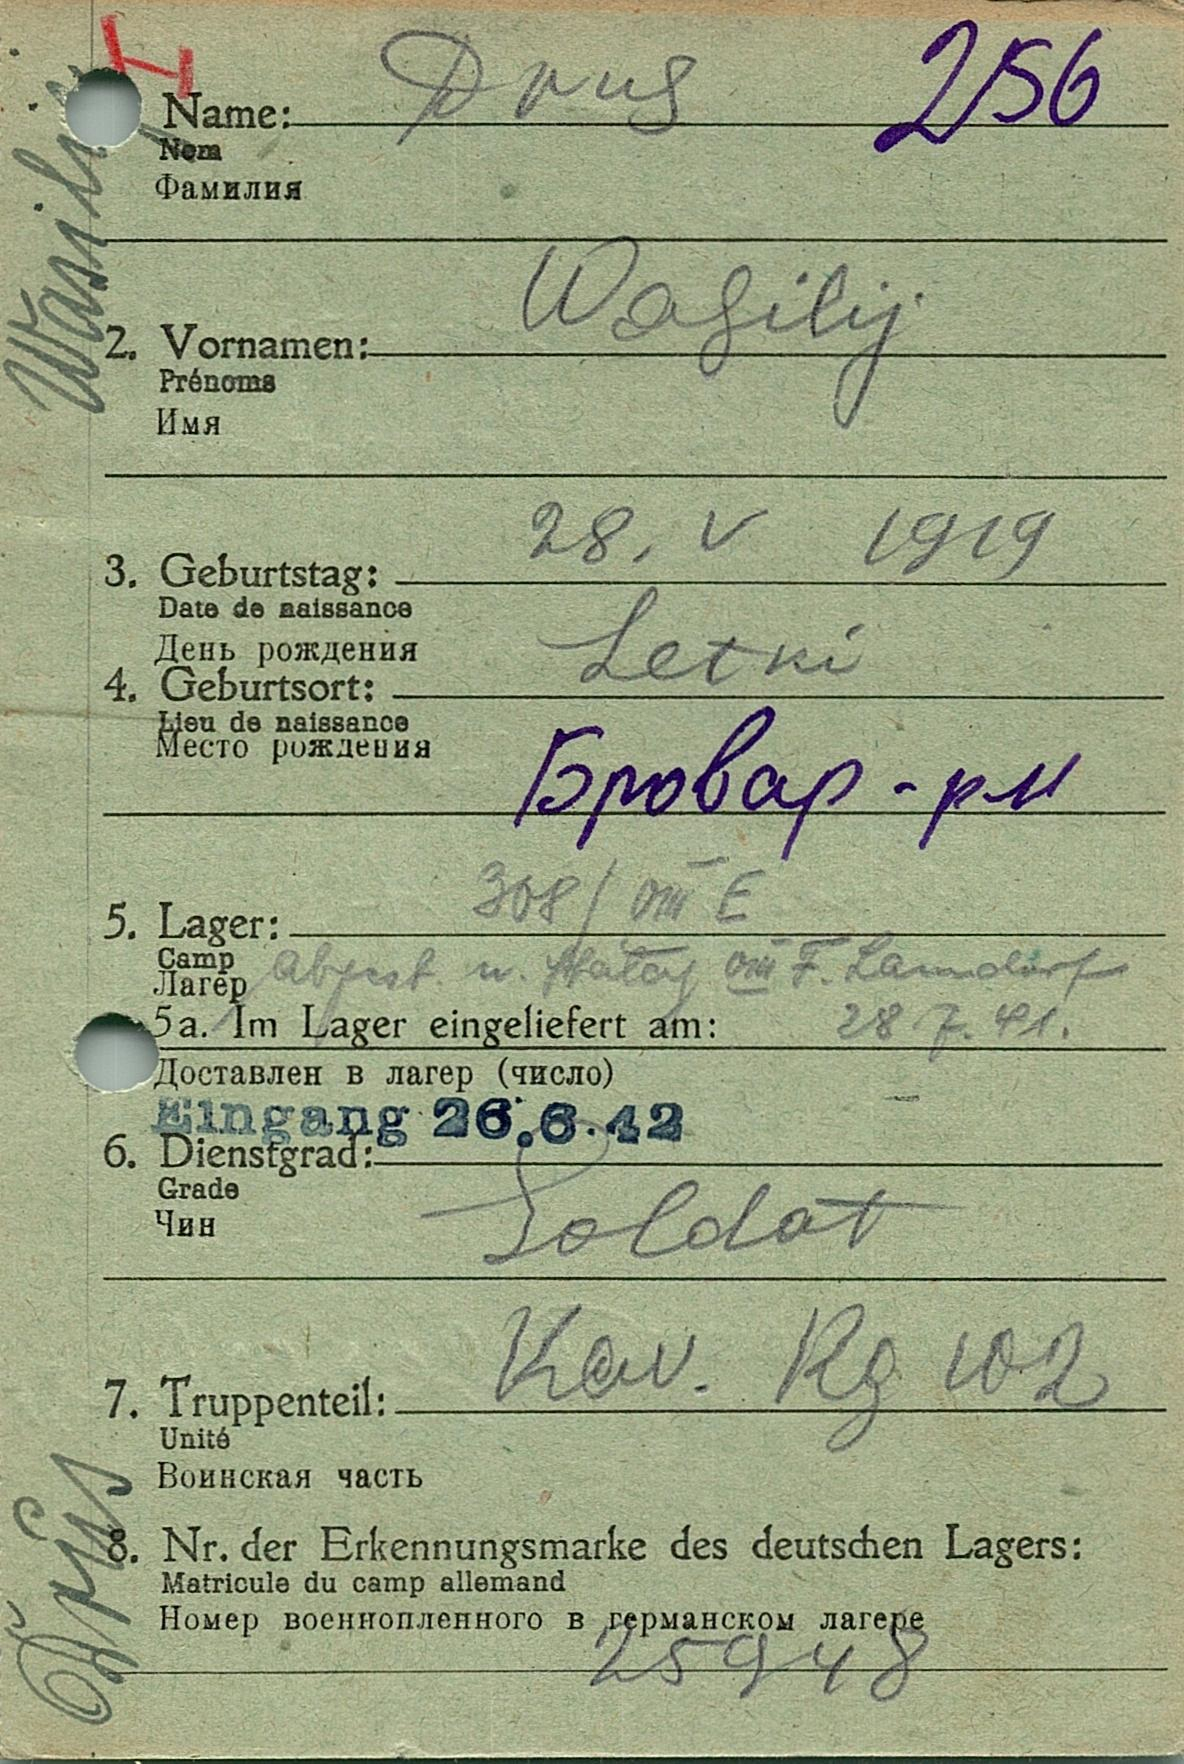 Name: Drus 256
Nom
Фамилия
Wasilij
2. Vornamen: Wasilij
Prénoms
Имя
3. Geburtstag: 28. V 1919
Date de naissance
День рождения
4. Geburtsort: Letki
Lieu de naissance
Место рождения
Бровар-рн
5. Lager: 308/VIII E
Camp
Лагер
n. Stalag VIII F. Lamsdorf
5a. Im Lager eingeliefert am: 28 7. 41.
Доставлен в лагер (число)
Eingang 26.6.42
6. Dienstgrad:
Grade
Чин
Soldat
7. Truppenteil: Kav. Rg 102
Unité
Воинская часть
Drus
8. Nr. der Erkennungsmarke des deutschen Lagers:
Matricule du camp allemand
Номер военнопленного в германском лагере
25948